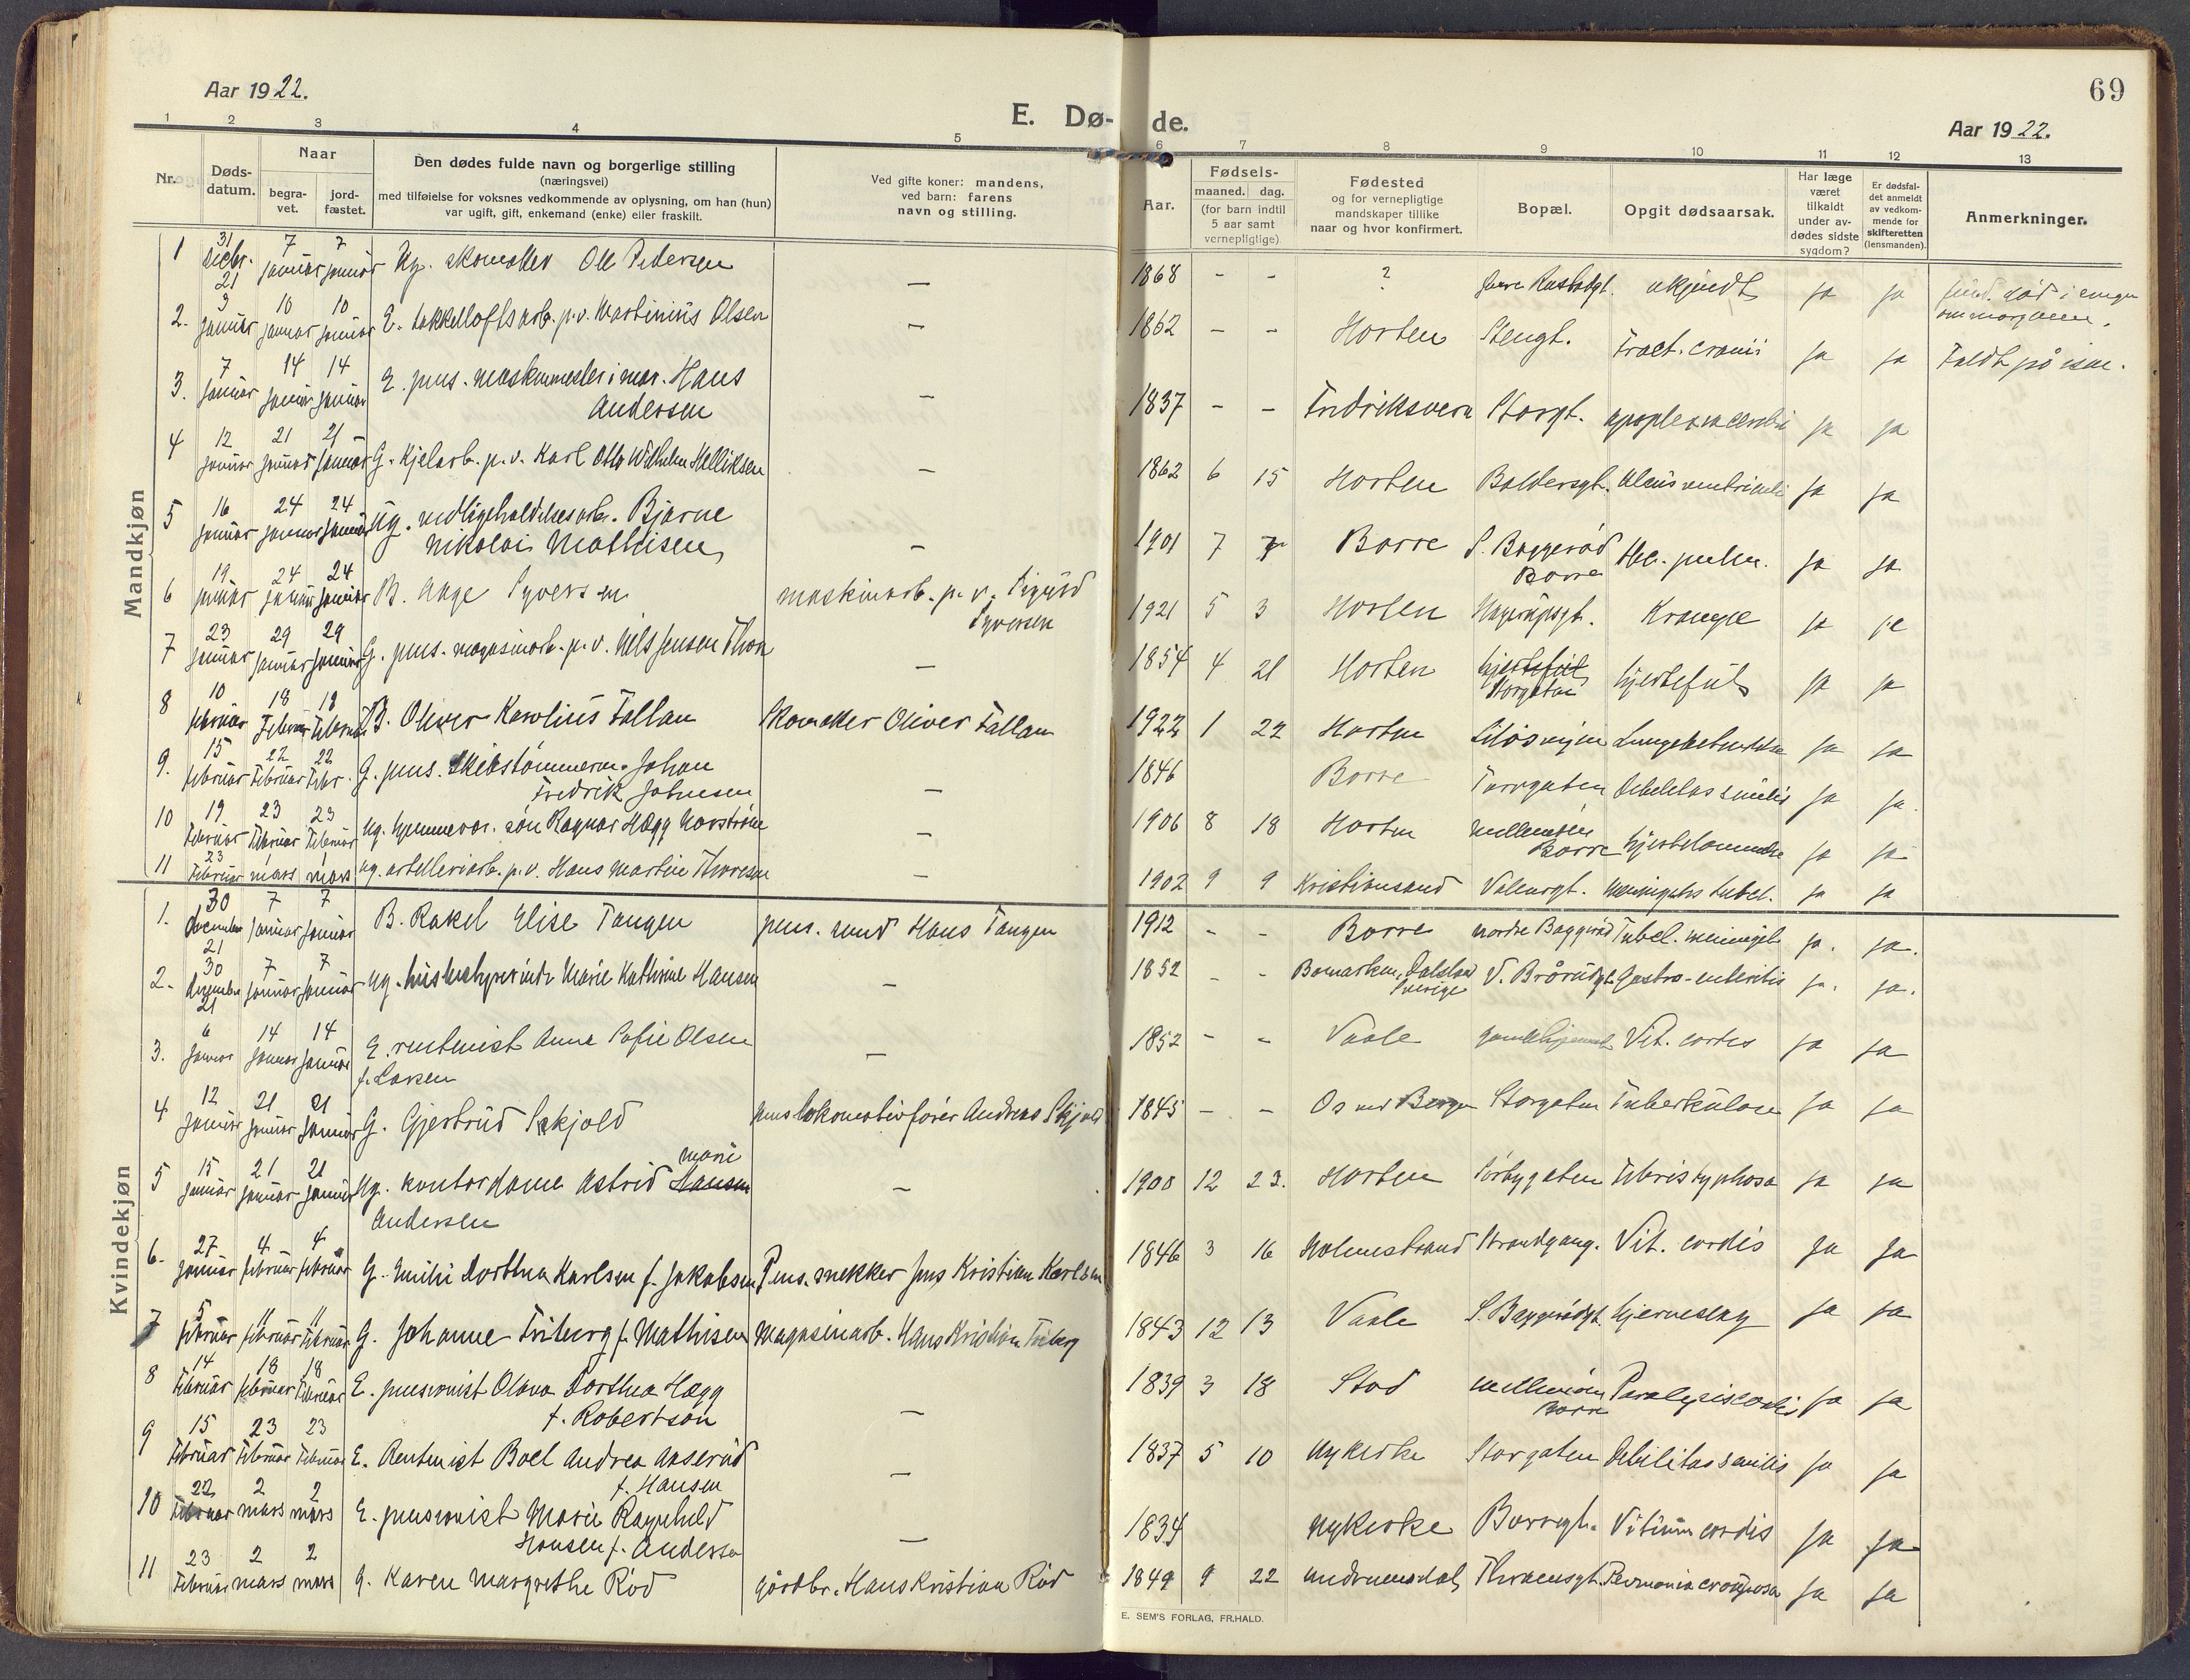 Aar 1922.
E. Dø-de.
69
Aar 1922.
1 2 3 4 5 6 7 8 9 10 11 12 13
Nr. Døds-datum. Naar begra-vet. jord-fæstet.
Den dødes fulde navn og borgerlige stilling
(næringsvei)
med tilføielse for voksnes vedkommende av oplysning, om han (hun)
var ugift, gift, enkemand (enke) eller fraskilt.
Ved gifte koner: mandens,
ved barn: farens
navn og stilling.
Aar.
Fødsels-
maaned. dag.
(for barn indtil
5 aar samt
vernepligtige)
Fødested
og for vernepligtige
mandskaper tillike
naar og hvor konfirmert.
Bopæl.
Opgit dødsaarsak.
Har læge
været
tilkaldt
under av-
dødes sidste
sygdom?
Er dødsfal-
det anmeldt
av vedkom-
mende for
skifteretten
(lensmanden).
Anmerkninger.
Mandkjøn
1 31 Decbr. 21 7 januar 7 januar Ug. skomaker Ole Pedersen — 1868 - - ? ukjendt ja ja død i engen om morgenen.
2. 9 januar 10 januar 10 januar E. takkelloftsarb. p.v. Martinius Olsen — 1862 - - Horten Stengt. Fract. cranii ja ja Faldt på isen.
3. 7 januar 14 januar 14 januar E. pens. maskinmester i mar. Hans
Andersen — 1837 - - Fredriksvern Storgt. apoplexia cerebri ja ja
4 12 januar 21 januar 21 januar G. Kjelarb. p.v. Karl Otto Wilhelm Helliksen — 1862 6 15 Horten Baldersgt. Ulcus ventriculi ja ja
5 16 januar 24 januar 24 januar Ug. vedligeholdelsesarb. Bjarne
Nikolai Mathisen — 1901 7 7 Borre S. Baggerød Borre tbc. pulm. ja ja
6 19 januar 24 januar 24 januar B. Aage Syversen maskinarb. p.v. Sigurd Syversen 1921 5 3 Horten Krampe ja ja
7 23 januar 29 januar 29 januar G. pens. magasinarb. p.v. Nils Jensen Thon — 1854 4 21 Horten hjertefeil Storgaten hjertefeil ja ja
8 10 februar 18 Februar 18 Februar B. Oliver Karolius Fallan Skomaker Oliver Fallan 1922 1 22 Horten Lungebetændelse ja ja
9. 15 februar 22 Februar 22 Febr. G. pens. Skibstømmerm. Johan
Fredrik Johnsen — 1846 Borre Torvgaten Debilitas senilis ja ja.
10 19 Februar 23 Februar 23 Februar Ug. hjemmevær. søn Ragnar Hægg Norstrøm — 1906 8 18 Horten Borre hjertelammelse ja ja
11 23 Februar 1 mars 1 mars ug. artelleriarb. p.v. Hans Martin Thoresen — 1902 9 9 Kristiansand Volensgt. Meningitis tubel. ja ja
Kvindekjøn
1. 30 December 21 7 januar 7 januar B. Rakel Elise Tangen pens. Hans Tangen 1912 - - Borre nordre Baggerød Tubel. meningit ja. ja.
2. 30 December 21 7 januar 7 januar ug. husbestyrerinde Marie Kathrine Hansen — 1852 - - Dalsland Sverige V. Brårudgt. Gastro-enteritis ja. ja.
3. 6 januar 14 januar 14 januar E. rentenist Anna Sofie Olsen
f. Larsen — 1852 - - Vaale gamlehjemmet Vit. cordis ja ja
4 12 januar 21 januar 21 januar G. Gjertrud Skjold pens lokomotivfører Andreas Skjold 1845 - - Os ved Bergen Storgaten Tuberkulose ja ja
5 15 januar 21 januar 21 januar Ug. kontordame Astrid Hansen Marie
Andersen — 1900 12 23. Horten Sørbygaten Febris typhosa ja ja
6. 27 januar 4 februar 4 februar G. Emilie Dorthea Karlsen f. Jakobsen Pens. snekker Jens Kristian Karlsen 1846 3 16 Holmestrand Strandgang. Vit. cordis ja ja
7 5 februar 11 februar 11 Februar G. Johanne Friberg f. Mathisen Magasinarb. Hans Kristian Friberg 1843 12 13 Vaale S. Baggerødgt. hjerneslag ja ja
8 14 Februar 18 februar 18 Februar E. pensionist Olava Dorthea Hægg
f. Robertson — 1839 3 18 Stod Borre Paralysis cordis ja ja
9 15 Februar 23 Februar 23 Februar E. Rentenist Boel Andrea Aaserud
f. Hansen — 1837 5 10 Nykirke Storgaten Debilitas senilis ja ja
10 22 Februar 2 mars 2 mars E. pensionist Marie Ragnhild
Hansen f. Andersen — 1834 Nykirke Borregt. Vitium cordis ja ja
11 23 Februar 2 mars 2 mars g. Karen Margrethe Rød gårdbr. Hans Kristian Rød 1849 9 22 Undrumsdal Thranesgt. Pevmonia crouposa ja ja
E. SEM'S FORLAG, FR.HALD.